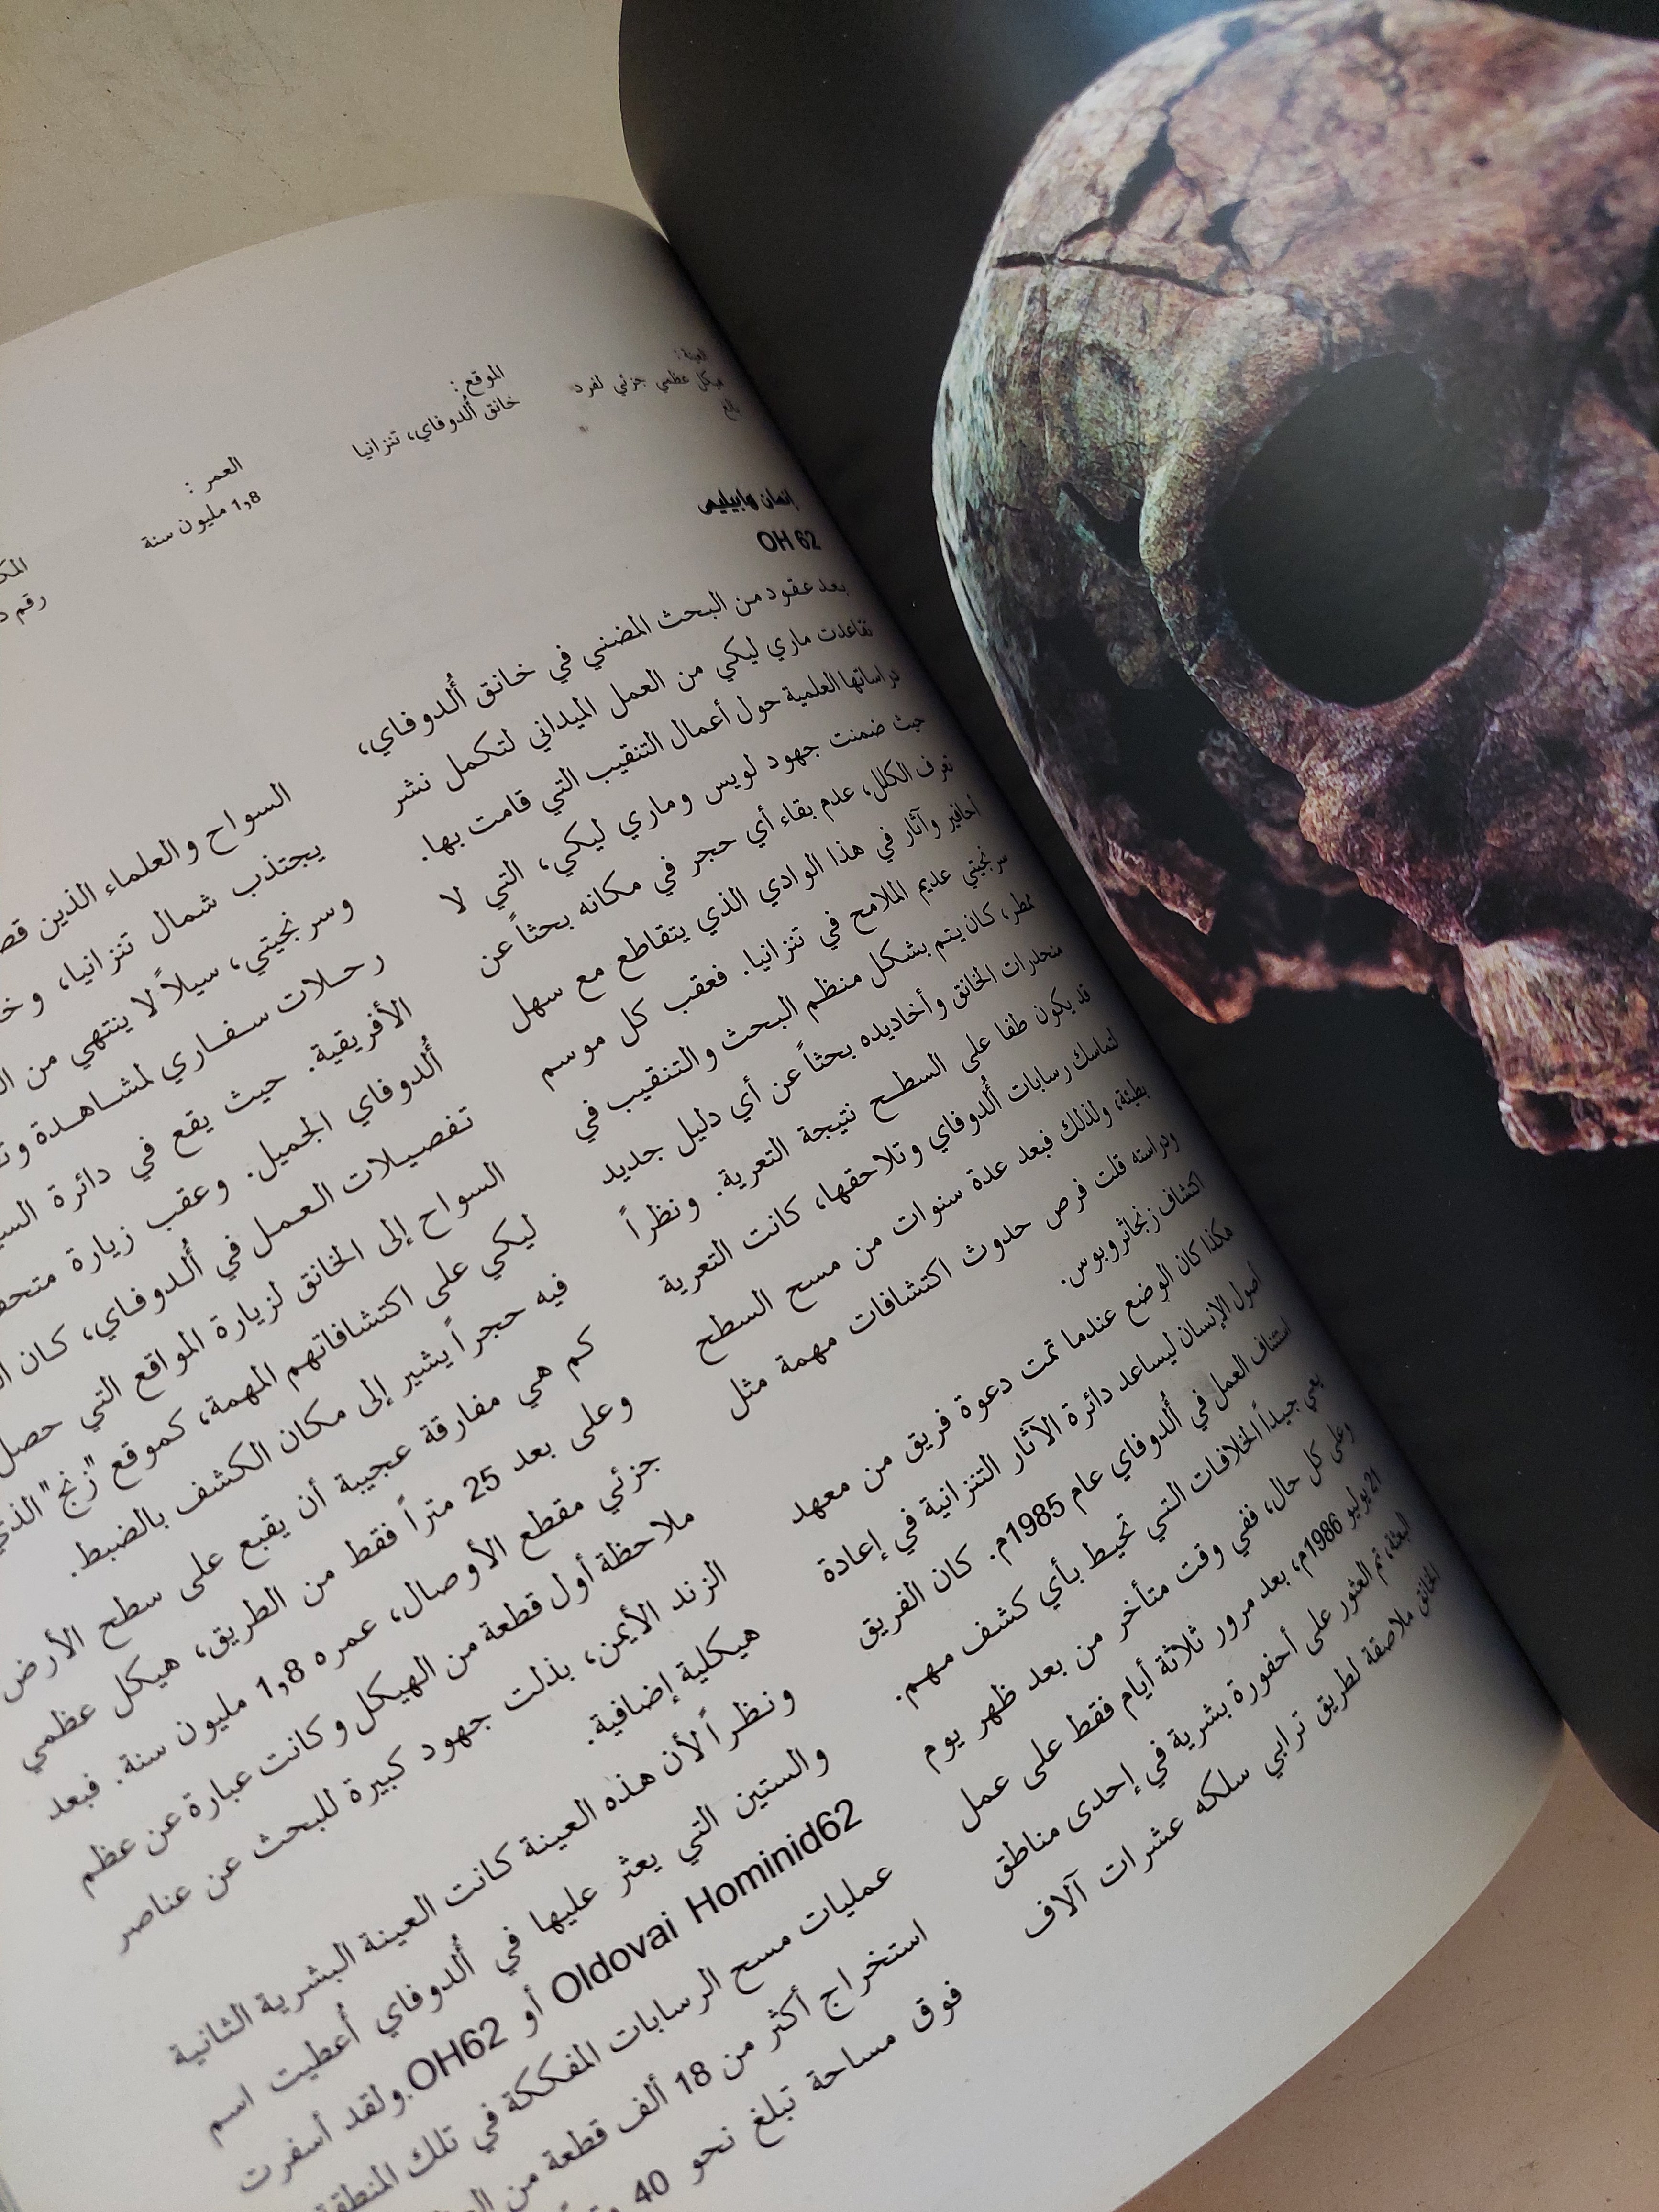 العينة:
هيكل عظمي جزئي لفرد
بالغ
الموقع:
خانق أُلدوفاي، تنزانيا
العمر:
1,8 مليون سنة
رقم
إنسان هابيليس
OH 62
بعد عقود من البحث المضني في خانق أُلدوفاي،
تقاعدت ماري ليكي من العمل الميداني لتكمل نشر
دراساتها العلمية حول أعمال التنقيب التي قامت بها.
حيث ضمنت جهود لويس وماري ليكي، التي لا
تعرف الكلل، عدم بقاء أي حجر في مكانه بحثاً عن
أحافير وآثار في هذا الوادي الذي يتقاطع مع سهل
سرنجيتي عديم الملامح في تنزانيا. فعقب كل موسم
مطر، كان يتم بشكل منظم البحث والتنقيب في
منحدرات الخانق وأخاديده بحثاً عن أي دليل جديد
قد يكون طفا على السطح نتيجة التعرية. ونظراً
لتماسك رسابات أُلدوفاي وتلاحقها، كانت التعرية
بطيئة، ولذلك فبعد عدة سنوات من مسح السطح
ودراسته قلت فرص حدوث اكتشافات مهمة مثل
اكتشاف زنجانثروبوس.
هكذا كان الوضع عندما تمت دعوة فريق من معهد
أصول الإنسان ليساعد دائرة الآثار التنزانية في إعادة
استئناف العمل في أُلدوفاي عام 1985م. كان الفريق
يعي جيداً الخلافات التي تحيط بأي كشف مهم.
وعلى كل حال، ففي وقت متأخر من بعد ظهر يوم
21 يوليو 1986م، بعد مرور ثلاثة أيام فقط على عمل
البعثة، تم العثور على أحفورة بشرية في إحدى مناطق
الخانق ملاصقة لطريق ترابي سلكه عشرات آلاف
السواح والعلماء الذين
يجتذب شمال تنزانيا،
وسرنجيتي، سيلاً لا ينتهي من
رحلات سفاري لمشاهدة
الأفريقية. حيث يقع في دائرة
أُلدوفاي الجميل. وعقب زيارة
تفصيلات العمل في أُلدوفاي، كان
السواح إلى الخانق لزيارة المواقع التي حصل
ليكي على اكتشافاتهم المهمة، كموقع "زنج" الذي
فيه حجراً يشير إلى مكان الكشف بالضبط.
كم هي مفارقة عجيبة أن يقبع على سطح الأرض
وعلى بعد 25 متراً فقط من الطريق، هيكل عظمي
جزئي مقطع الأوصال، عمره 1,8 مليون سنة. فبعد
ملاحظة أول قطعة من الهيكل وكانت عبارة عن عظم
الزند الأيمن، بذلت جهود كبيرة للبحث عن عناصر
هيكلية إضافية.
ونظراً لأن هذه العينة كانت العينة البشرية الثانية
والستين التي يعثر عليها في أُلدوفاي أُعطيت اسم
Oldovai Hominid62 أو OH62. ولقد أسفرت
عمليات مسح الرسابات المفككة في تلك المنطقة
استخراج أكثر من 18 ألف قطعة من
فوق مساحة تبلغ نحو 40